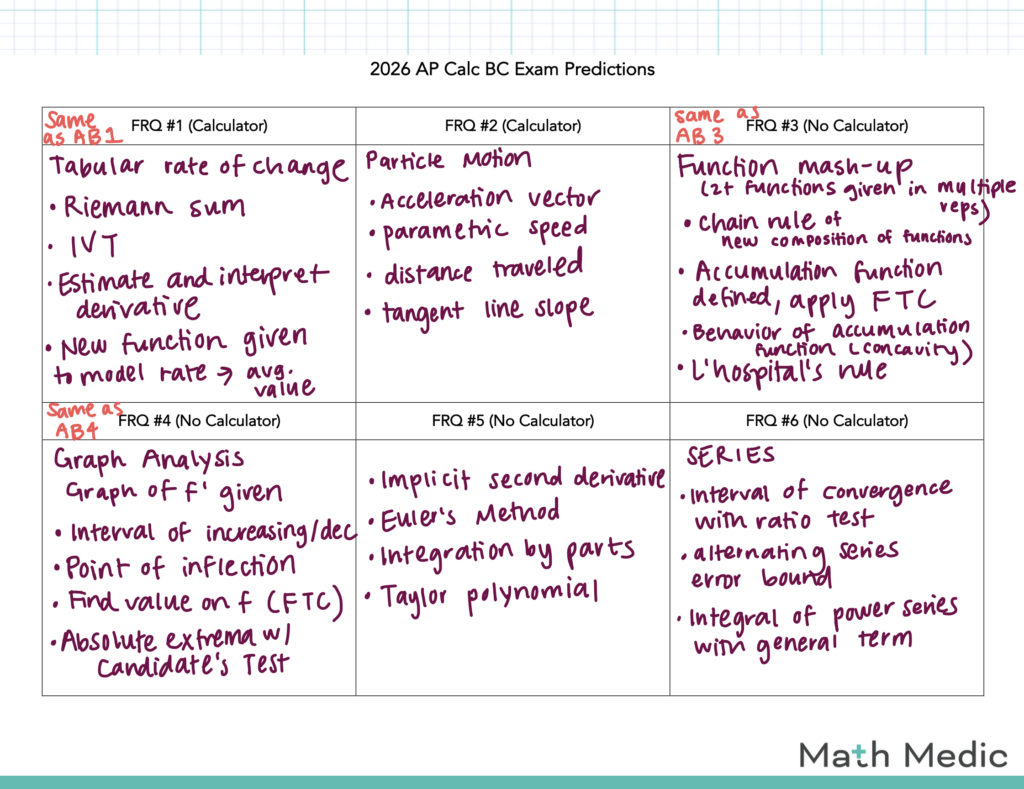 2026 AP Calc BC Exam Predictions
Same
as AB1
FRQ #1 (Calculator)
Tabular rate of change
• Riemann sum
• IVT
• Estimate and interpret
derivative
• New function given
to model rate → avg.
value
FRQ #2 (Calculator)
Particle Motion
• Acceleration vector
• parametric speed
• distance traveled
• tangent line slope
same as
AB 3
FRQ #3 (No Calculator)
Function mash-up
(2+ functions given in multiple
reps)
• Chain rule of
new composition of functions
• Accumulation function
defined, apply FTC
• Behavior of accumulation
function (concavity)
• L'hospital's rule
Same as
AB4
FRQ #4 (No Calculator)
Graph Analysis
Graph of f' given
• Interval of increasing/dec
• Point of inflection
• Find value on f (FTC)
• Absolute extrema w/
Candidate's Test
FRQ #5 (No Calculator)
• Implicit second derivative
• Euler's Method
• Integration by parts
• Taylor polynomial
FRQ #6 (No Calculator)
SERIES
• Interval of convergence
with ratio test
• alternating series
error bound
• Integral of power series
with general term
Math Medic